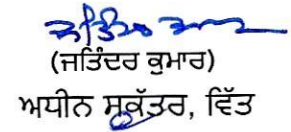 (ਜਤਿੰਦਰ ਕੁਮਾਰ)
ਅਧੀਨ ਸਕੱਤਰ, ਵਿੱਤ